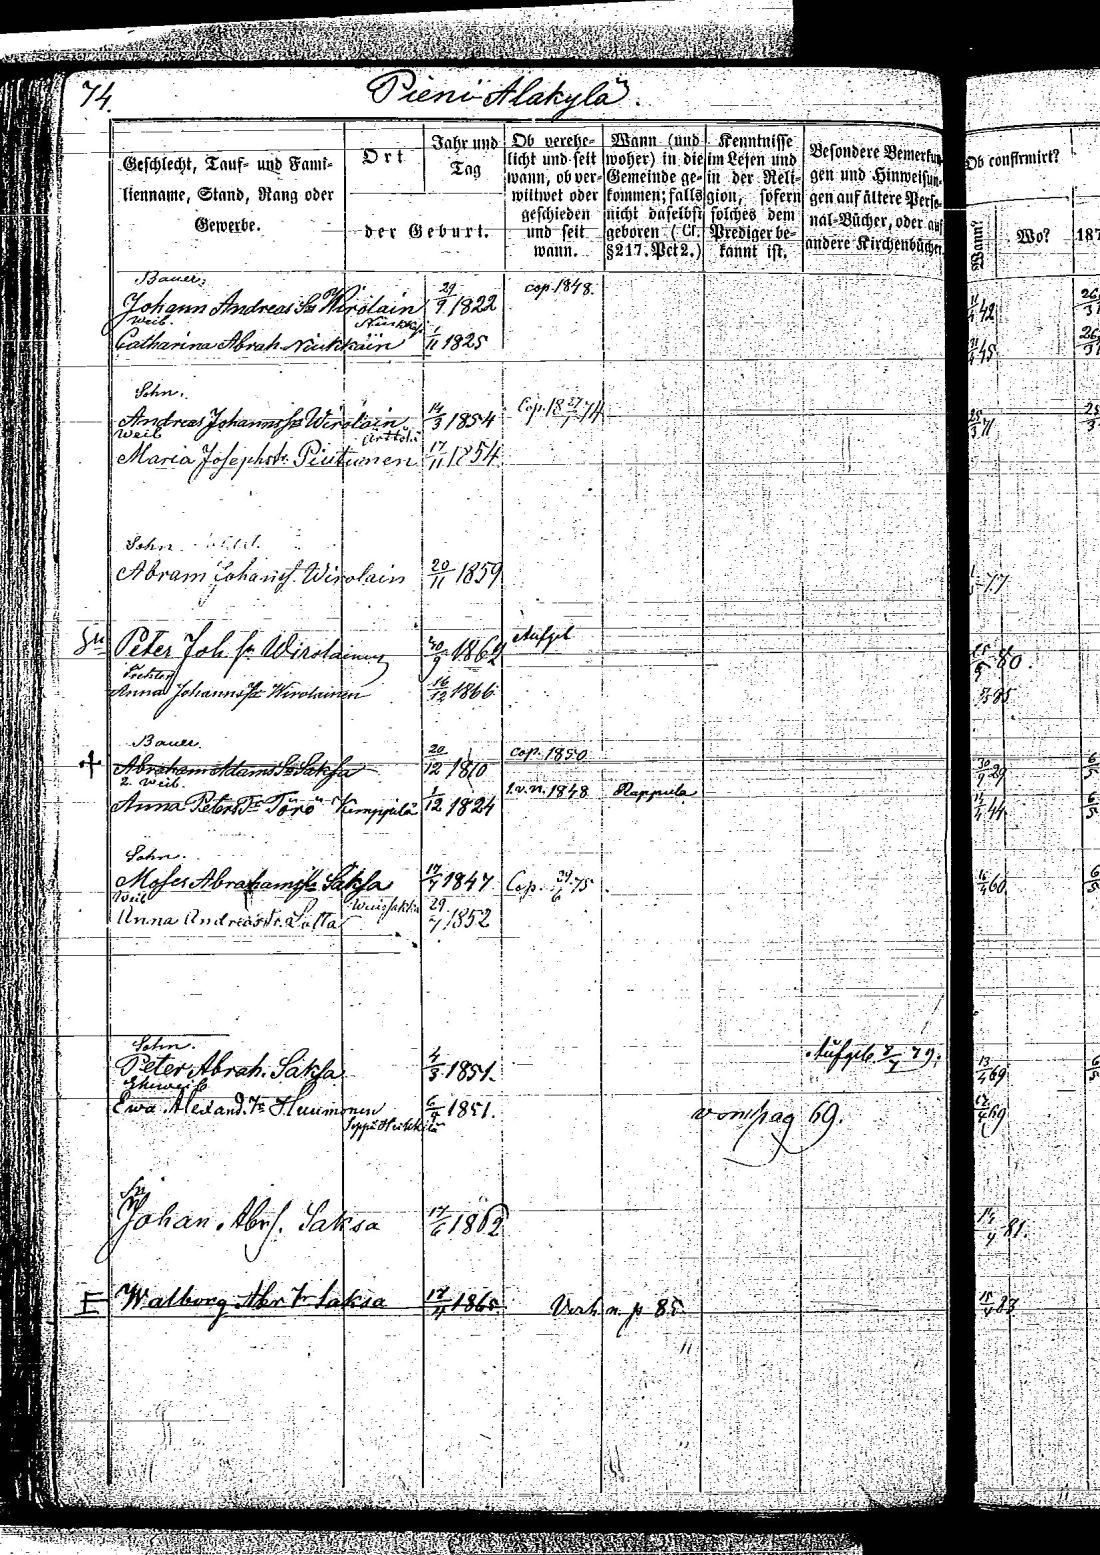 74.
Pieni Alakylä.
Geschlecht, Tauf- und Fami-
lienname, Stand, Rang oder
Gewerbe.
Ort
der Geburt.
Jahr und
Tag
Ob verehe-
licht und seit
wann, ob ver-
wittwet oder
geschieden
und seit
wann.
Wann (und
woher) in die
Gemeinde ge-
kommen; falls
nicht daselbst
geboren (Cf.
§ 217. Pct 2.)
Kenntnisse
im Lesen und
in der Reli-
gion, sofern
solches dem
Prediger be-
kannt ist.
Besondere Bemerkun-
gen und Hinweisun-
gen auf ältere Perso-
nal-Bücher, oder auf
andere Kirchenbücher.
Ob confirmirt?
Wann?
Wo?
187
Bauer.
Johann Andreas Sn Wirolain 29/9 1822 cop. 1848. 42
Weib.
Catharina Abrah. Nuikkain 1/11 1825 45
Sohn.
Andreas Johanns Sn Wirolain 14/3 1854 Cop. 18 27/1 74 25/3 71
Weib
Maria Josephstr. Piutunen 17/11 1854
Sohn
Abram Johanss. Wirolain 20/11 1859 77
Sn Peter Joh. sn Wirolainen 30/9 1862 Aufgeb 80.
Tochter
Anna Johanns Tr Wirolainen 16/12 1866 85
Bauer.
Abraham Adams Sn Saksa 20/12 1810 cop. 1850 30/9 29
2. Weib.
Anna Peters Tr Törö Kemppilä 1/12 1824 1.v.n. 1848 Rappula 44
Sohn.
Moses Abrahams Sn Saksa 17/7 1847 Cop. 24/6 75 60
Weib
Anna Andreastr. Latta 29/7 1852
Sohn.
Peter Abrah. Saksa 4/3 1851. Aufgeb. 7/7 79. 13/4 69
Eheweib
Ewa Alexand. Tr Huumonen 6/9 1851. von pag 69. 69
Seppä Heikkilä
Sn
Johan Abrs. Saksa 17/6 1862 81.
E Walborg Abr Tr Saksa 17/4 1865 Verh. n. p 85. 83